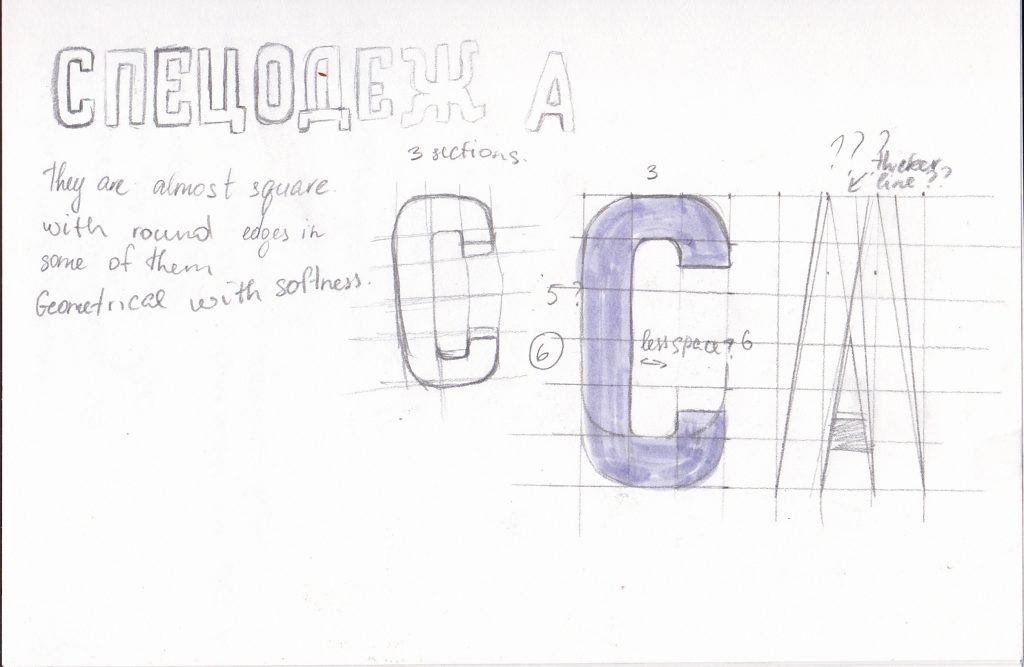 СПЕЦОДЕЖ А
3 sections.
They are almost square
with round edges in
some of them
Geometrical with softness.
3
???
thicker
line??
5?
6
less space? 6
С
С А